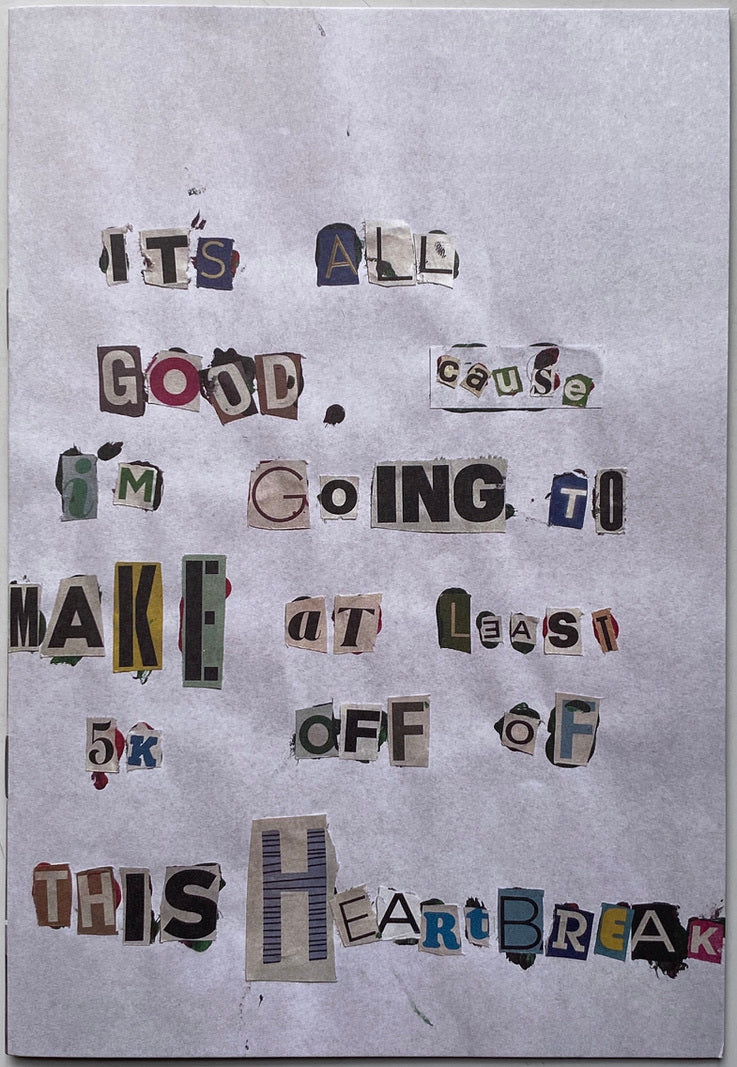 ITS ALL
GOOD. cause
iM GoING TO
MAKE aT LEAST
5K OFF oF
THIS HEARtBREAK